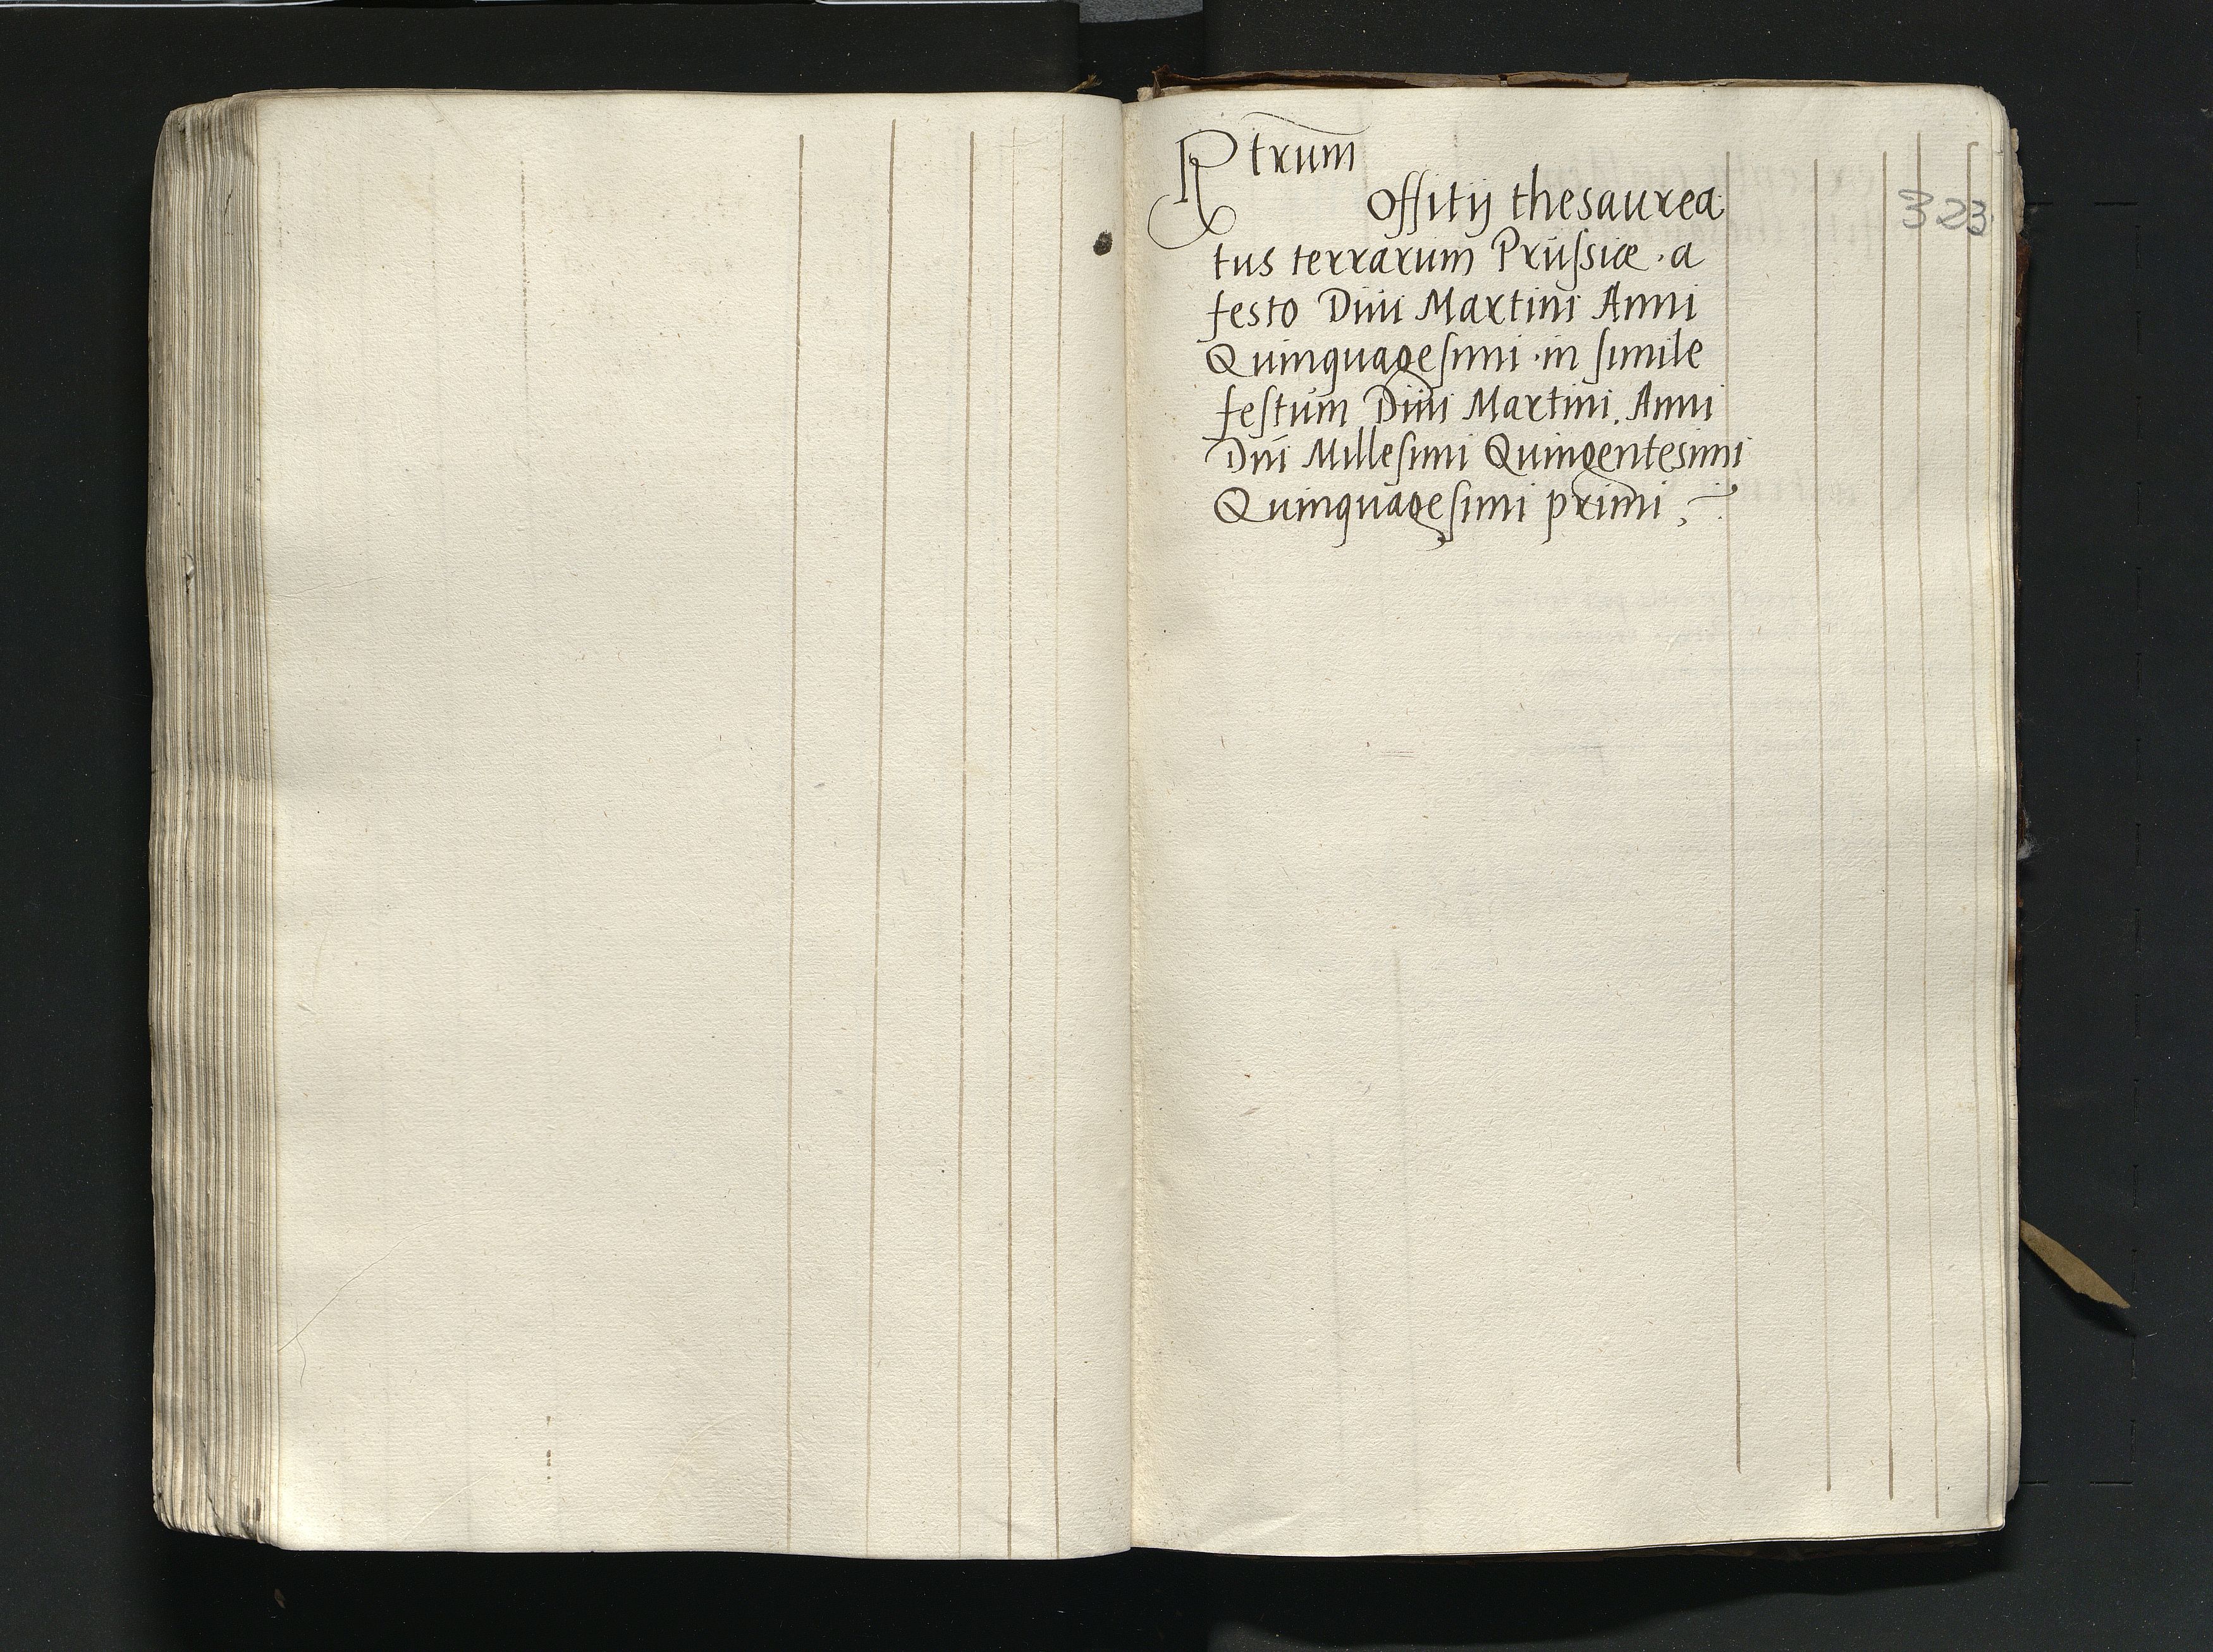 Rtrum
offitij thesaurea
tus terrarum Prussiæ · a
festo Diui Martini Anni
Quinquagesimi · in simile
festum Diui Martini. Anni
Dni Millesimi Quingentesimi
Quinquagesimi primi ;
323